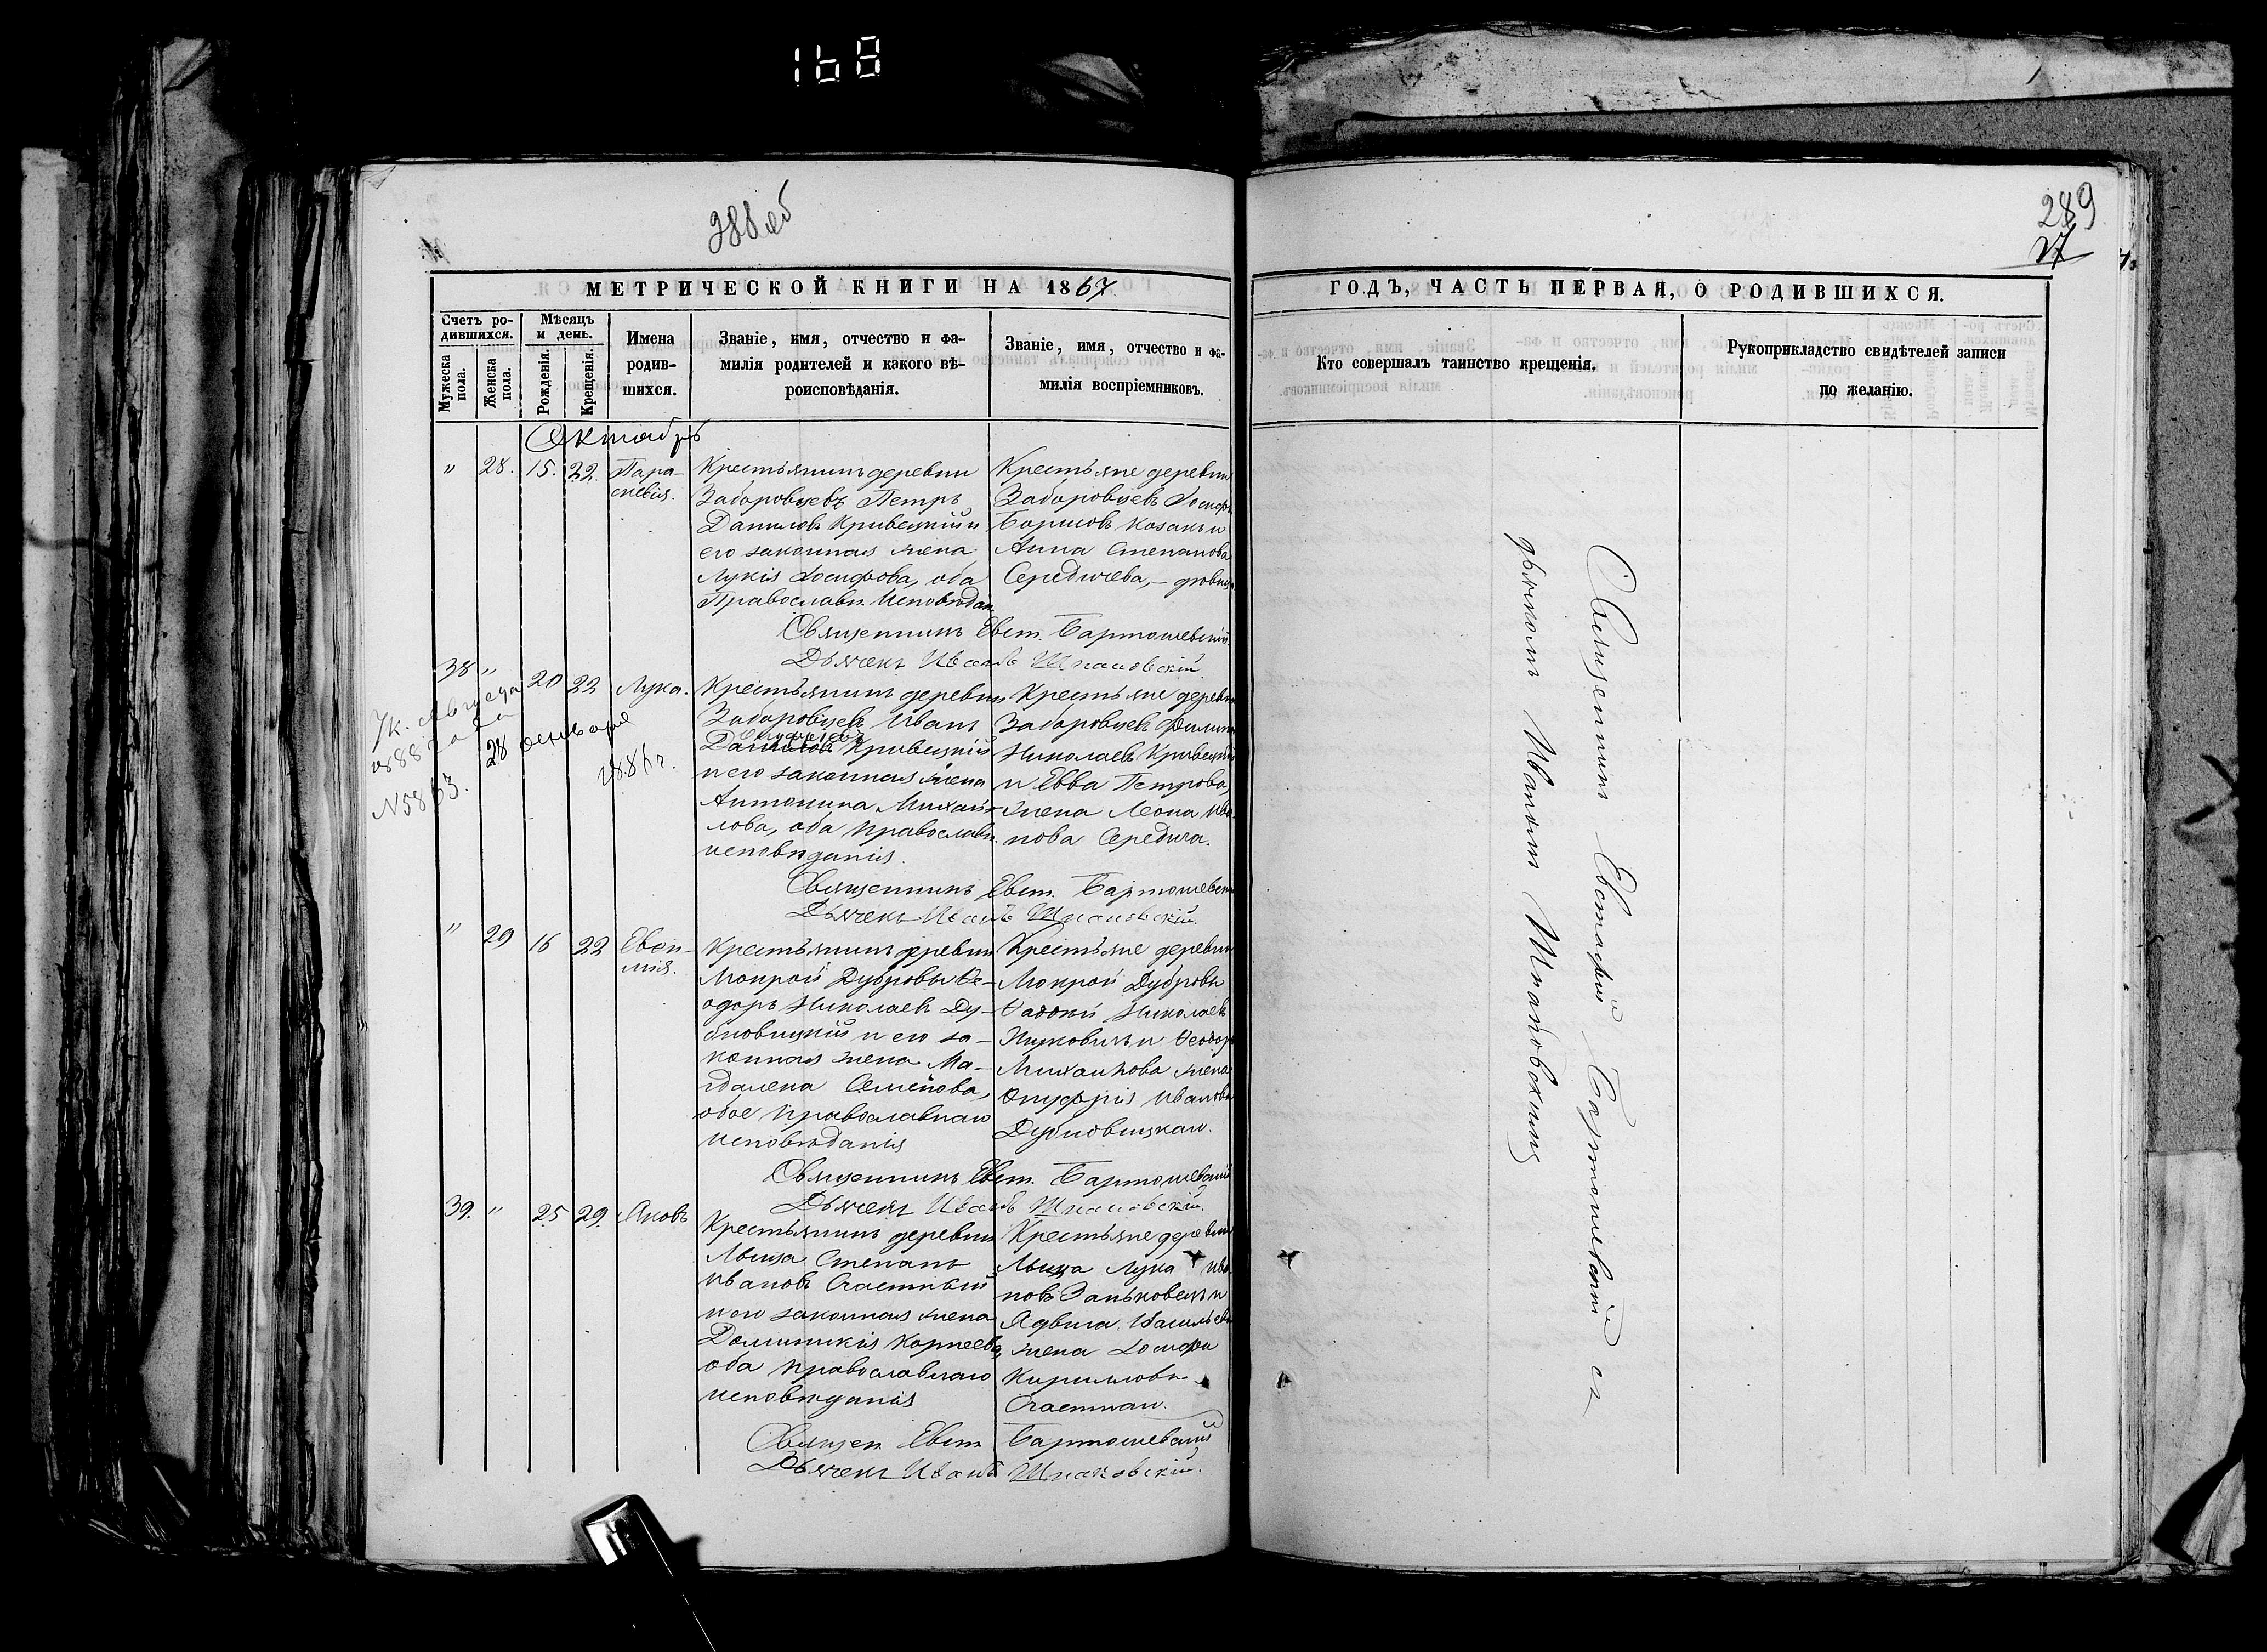 168
288 об
289
27
МЕТРИЧЕСКОЙ КНИГИ НА 1867
ГОДЪ, ЧАСТЬ ПЕРВАЯ, О РОДИВШИХСЯ.
Счетъ ро-
дившихся.
Мужеска
пола.
Женска
пола.
Мѣсяцъ
и день.
Рожденія.
Крещенія.
Имена
родив-
шихся.
Званіе, имя, отчество и фа-
милія родителей и какого вѣ-
роисповѣданія.
Званіе, имя, отчество и фа-
милія воспріемниковъ.
Кто совершалъ таинство крещенія.
Рукоприкладство свидѣтелей записи
по желанію.
Октябрь
" 28. 15. 22. Пара-
скевія.
Крестьянинъ деревни
Забаровцевъ Петръ
Даниловъ Кривецкій и
его законная жена
Лукія Іосифова, оба
Православн. Исповѣдан
Крестьяне деревни
Забаровцевъ Іосифъ
Борисовъ Козакъ и
Анна Степанова
Середичева, – дѣвица
Священникъ Евст. Бартошевскій
Дьячекъ Иванъ Шпаковскій
38 " 20 22 Лука.
Ук.
28 Января
1886 г.
N5863.
Крестьянинъ деревни
Забаровцевъ Иванъ
Даниловъ Кривецкій
и его законная жена
Антонина Михай-
лова, оба православн.
исповѣданія.
Крестьяне деревни
Забаровцевъ Филипъ
Николаевъ Кривецкій
и Евва Петрова,
жена Леона Ива-
нова Середича.
Священникъ Евст. Бартошевскій
Дьячекъ Иванъ Шпаковскій.
" 29 16 22 Евфи-
мія.
Крестьянинъ деревни
Мокрой Дубровы Ѳе-
одоръ Николаевъ Ду-
бновицкій и его за-
конная жена Ма-
гдалена Семенова,
обое православнаго
исповѣданія
Крестьяне деревни
Мокрой Дубровы
Ѳаддей Николаевъ
и Ѳеодора
Михайлова жена
Онуфрія Иванова
Дубновицкаго.
Священникъ Евст. Бартошевскій
Дьячекъ Иванъ Шпаковскій.
39. " 25 29. Яковъ
Крестьянинъ деревни
Лыща Степанъ
Ивановъ Счастный
и его законная жена
Доминикія Корнеева,
оба православнаго
исповѣданія
Крестьяне деревни
Лыща Лука Ива-
новъ Заньковецъ и
Ядвига Васильева
жена Іосифа
Кириллова
Счастнаго.
Священ Евст Бартошевскій
Дьячекъ Иванъ Шпаковскій.
Священникъ Евстафій Бартошевскій съ
дьячкомъ Иваномъ Шпаковскимъ